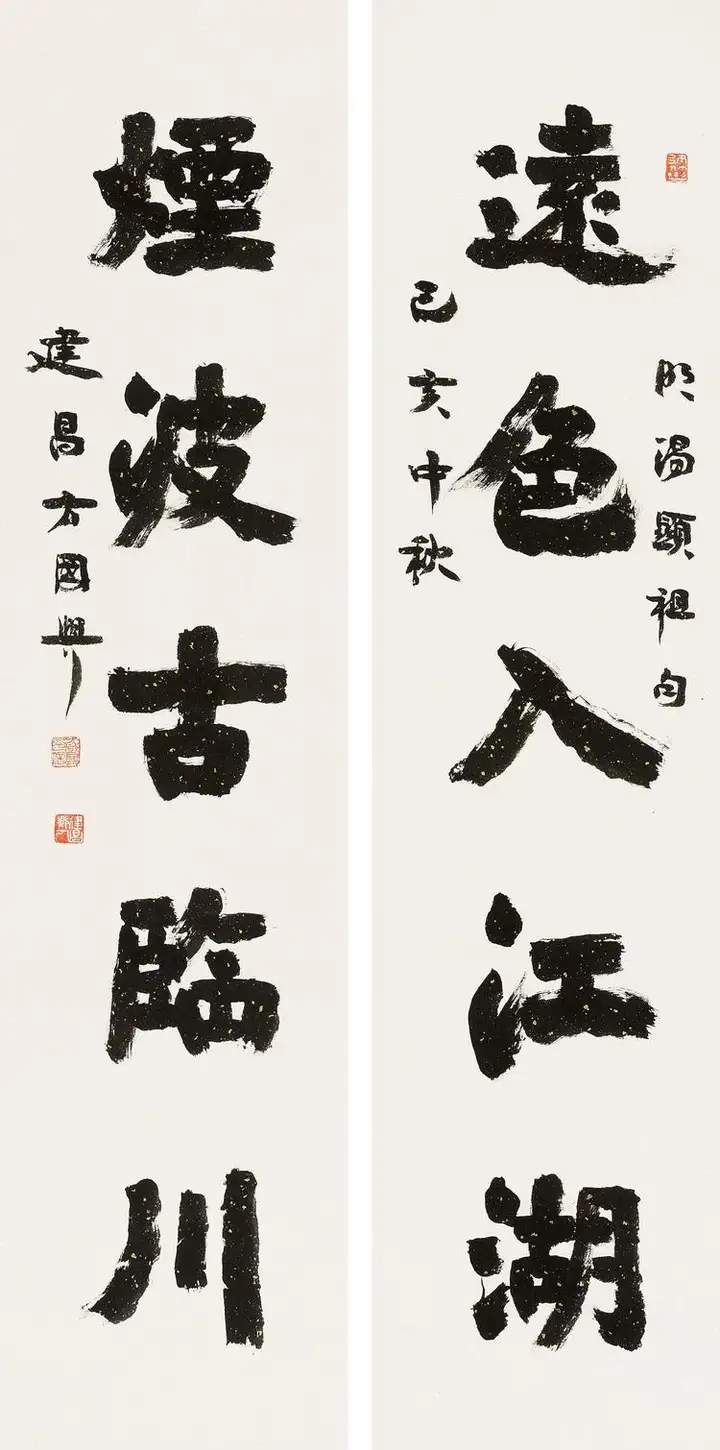 明湯顯祖句
遠色入江湖
己亥中秋
煙波古臨川
建昌方國興